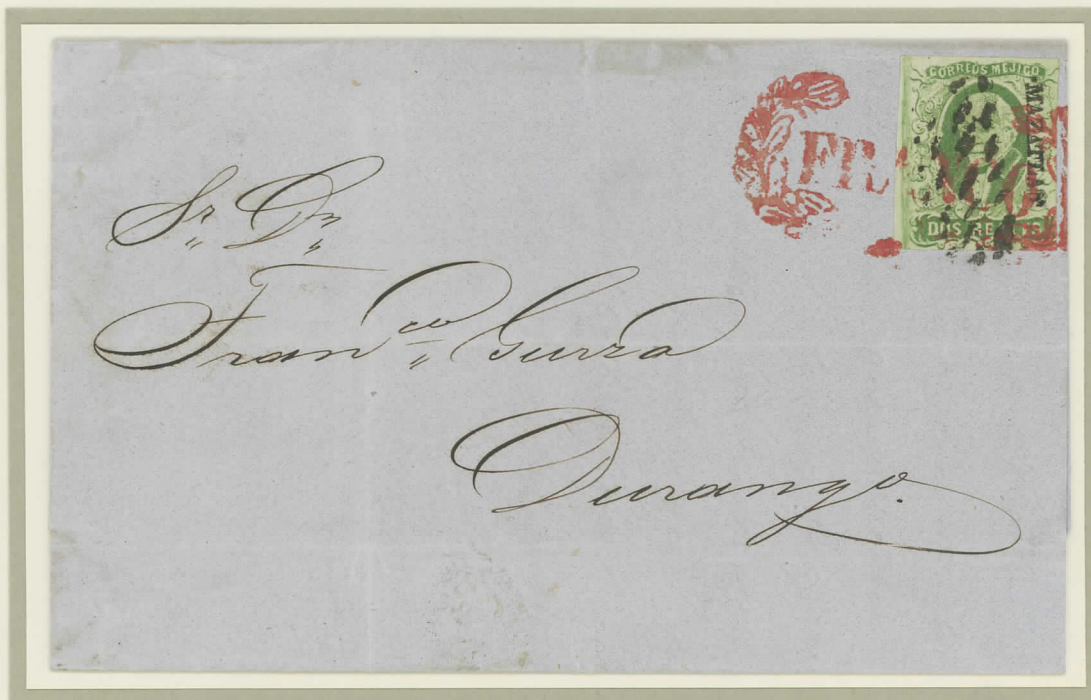 CORREOS MEJICO
MAZATLAN
FR
DOS REALES
Sr. Dn.
Franco. Gurza
Durango.